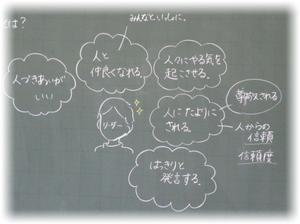 とは?
みんなといっしょに。
人と
仲良くなれる。
人々にやる気を
起こさせる。
人づきあいが
いい
リーダー
人にたよりに
される。
尊敬される
人からの
信頼
信頼度
はっきりと
発言する。